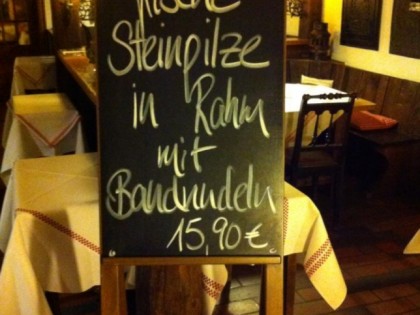 Steinpilze
in Rahm
mit
Bandnudeln
15,90 €